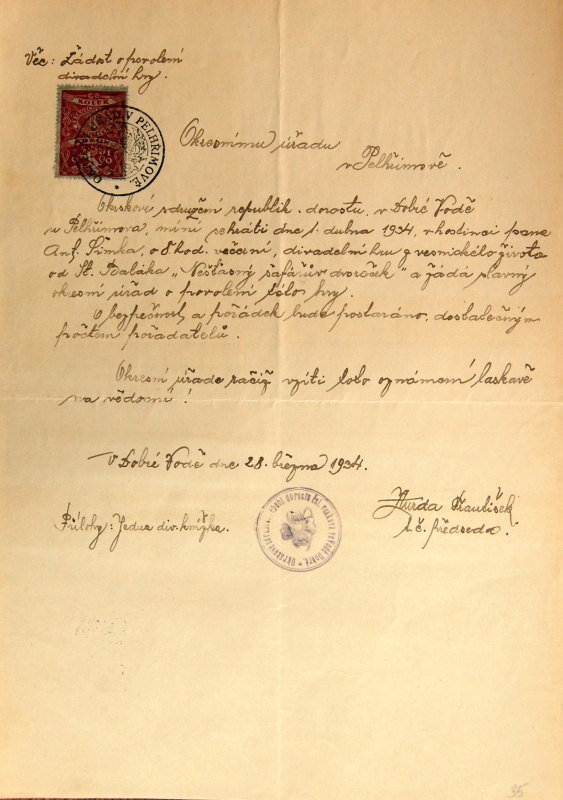 Věc: Žádost o povolení
divadelní hry.
KOLEK
OKRESNÍ ÚŘAD V PELHŘIMOVĚ
Okresnímu úřadu
v Pelhřimově.
Okrskové sdružení republik. dorostu, v Dobré Vodě
u Pelhřimova, míní sehráti dne 1. dubna 1934, v hostinci pana
Ant. Šimka, o 8 hod. večerní, divadelní hru z vesnického života
od St. "Nešťasný šafářův dvoreček" a žádá slavný
okresní úřad o povolení této hry.
O bezpečnost a pořádek bude postaráno, dostatečným
počtem pořadatelů.
Okresní úřade račiž vzíti toto oznámení laskavě
na vědomí!
V Dobré Vodě dne 28. března 1934.
Přílohy: Jedna div. knížka.
František
t. č. předseda.
35